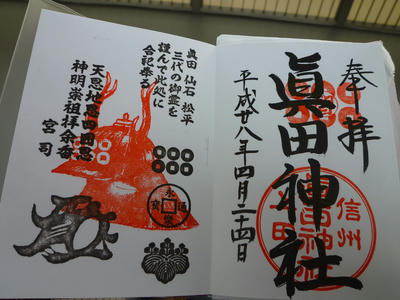 奉拝
眞田神社
平成廿八年四月二十四日
信州
上田
眞田神社
眞田 仙石 松平
三代の御霊を
謹んで此処に
合記奉る
天恩地恩四囲恩
神明崇祖拝余香
宮司
永樂通寳